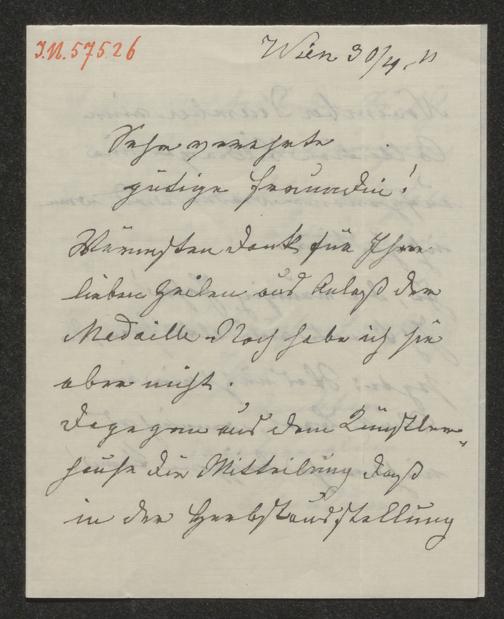 I.N. 57526
Wien 30/4.
Sehr verehrte
gütige Freundin!
Wärmsten Dank für Ihre
lieben Zeilen aus Anlaß der
Medaille. Noch habe ich sie
aber nicht.
Dagegen aus dem Künstler-
hause die Mitteilung daß
in der Herbstausstellung